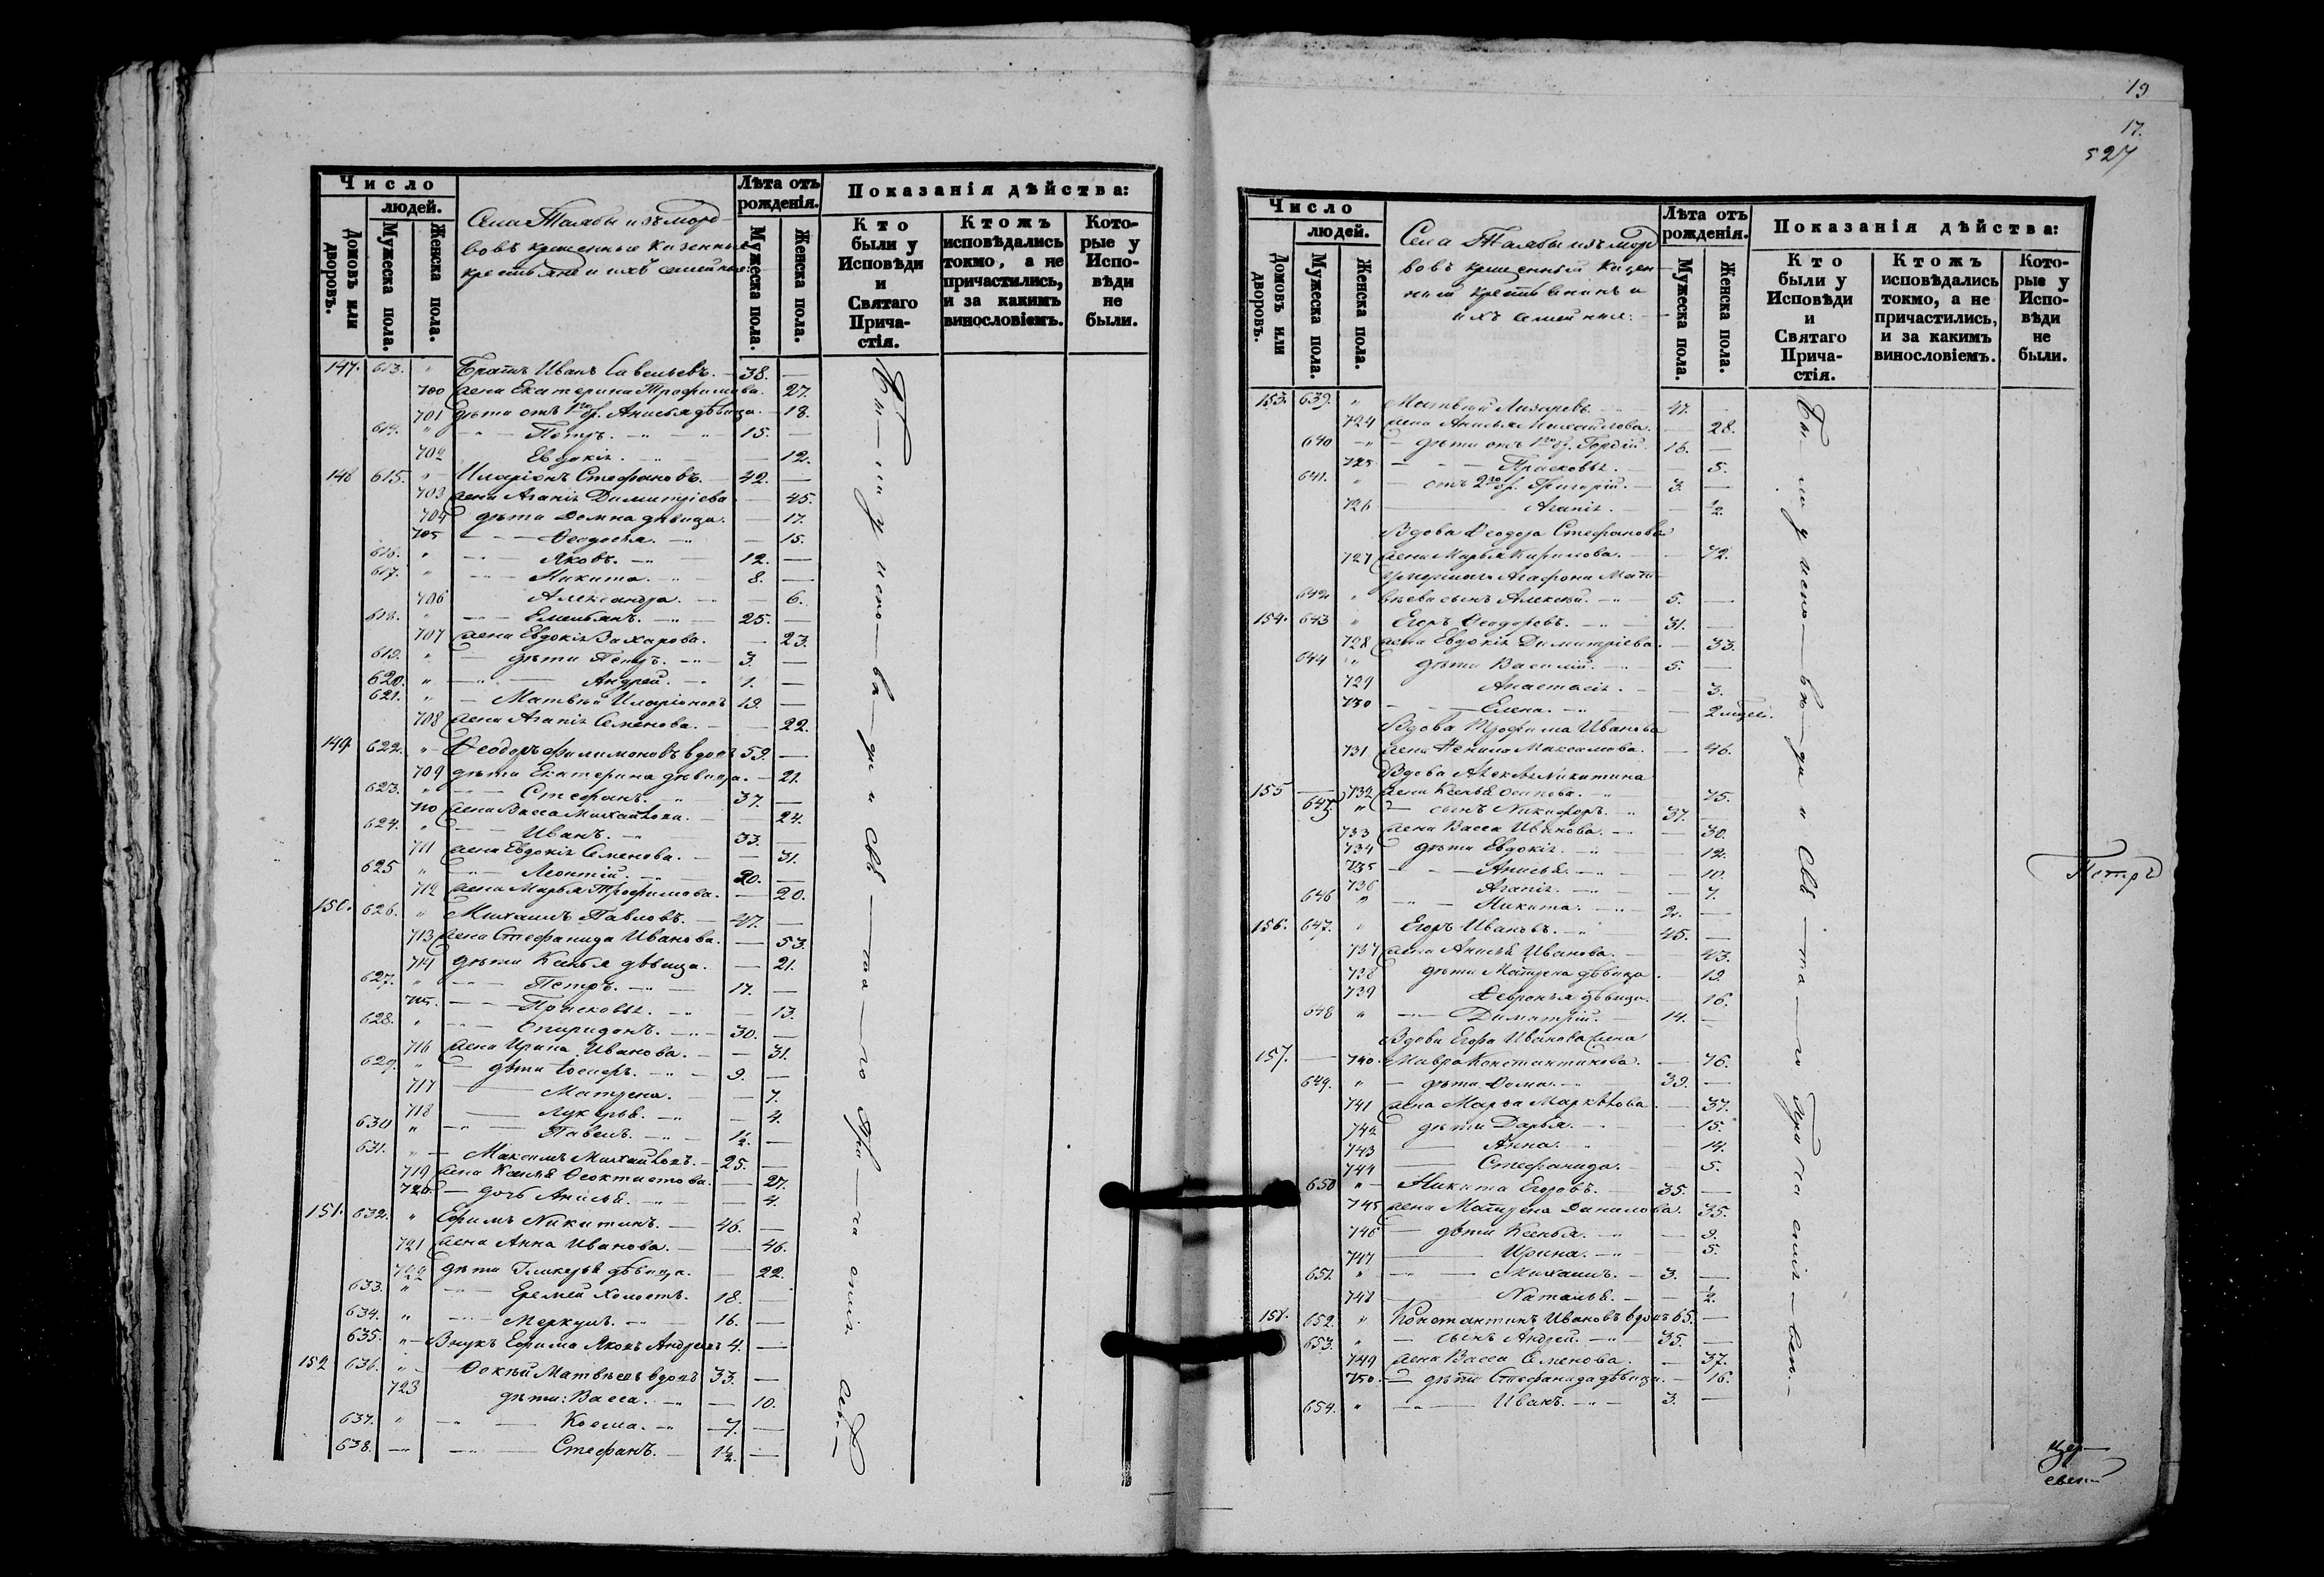 Число
людей.
Домовъ или дворовъ.
Мужеска пола.
Женска пола.
Села Талабы изъ морд-
вовъ крещенныи казенныи
крестьяне и ихъ семейныя
Лѣта отъ рожденія.
Мужеска пола.
Женска пола.
Показанія дѣйства:
Кто были у Исповѣди и Святаго Причастія.
Ктожъ исповѣдались токмо, а не причастились, и за какимъ винословіемъ.
Которые у Исповѣди не были.
147. 613. " Братъ Иванъ Савельевъ. 38. —
700 жена Екатерина Трофимова. 27.
701 дѣти отъ 1го бр. Анисья дѣвица. — 18.
614. " Петръ. 15. —
702 Евдокія. — 12.
148 615. " Иларіонъ Стефановъ. 42. —
703 жена Агапія Димитріева — 45.
704 дѣти Домна дѣвица. — 17.
705 Ѳеодосья. — 15.
616. " Яковъ. 12. —
617. " Никита. 8. —
706 Александра. — 6.
618. " Емельянъ. 25. —
707 жена Евдокія Захарова. — 23.
619. " дѣти Петръ. 3. —
620. " Андрей. 1. —
621. " Матвѣй Иларіоновъ 19. —
708 жена Агапія Семенова. — 22.
149 622. " Ѳеодоръ Филимоновъ вдовъ 59. —
709 дѣти Екатерина дѣвица. — 21.
623. " Стефанъ. 37. —
710 жена Васса Михайлова. — 24.
624. " Иванъ. 33. —
711 жена Евдокія Семенова. — 31.
625 " Леонтій. 20. —
712 жена Марья Трофимова. — 20.
150. 626. " Михаилъ Павловъ. 47. —
713 жена Стефанида Иванова. — 53.
714 дѣти Ксенья дѣвица. — 21.
627. " Петръ. 17. —
715. Прасковья. — 13.
628. " Спиридонъ. 30. —
716 жена Ирина Иванова. — 31.
629. " дѣти 9. —
717 Матрена. — 7.
718 Лукерья. — 4.
630 " Павелъ. 1½. —
631. " Максимъ Михайловъ. 25. —
719 жена Ксенья Ѳеоктистова. — 27.
720 дочь Анисья. — 4.
151. 632. " Ефимъ Никитинъ. 46. —
721 жена Анна Иванова. — 46.
722 дѣти Гликерья дѣвица. — 22.
633. " Еремей холостъ. 18. —
634. " Меркулъ. 16. —
635. " Внукъ Ефима Яковъ Андреевъ 4. —
152 636. " Матвѣевъ вдовъ 33. —
723 дѣти: Васса. — 10.
637. " Косма. 7. —
638. Стефанъ. 1½. —
Бы — ли у испо — вѣ — ди и Свя — та — го При — ча стія
19
17.
527
Число
людей.
Домовъ или дворовъ.
Мужеска пола.
Женска пола.
Села Талабы изъ морд
вовъ крещенныи казен-
ныи крестьянинъ и
ихъ семейныя.
Лѣта отъ рожденія.
Мужеска пола.
Женска пола.
Показанія дѣйства:
Кто были у Исповѣди и Святаго Причастія.
Ктожъ исповѣдались токмо, а не причастились, и за какимъ винословіемъ.
Которые у Исповѣди не были.
153. 639. " Матвѣй Лазаревъ. 47. —
724 жена Анисья Михайлова. — 28.
640 дѣти отъ 1го бр. Гордѣй. 16. —
725 Прасковья. — 5.
641. " отъ 2го бр. Григорій. 3. —
726 Агапія. — ½.
Вдова Ѳеодора Стефанова
727 жена Марья Кирилова. — 72.
Агафона Мат-
642 " вѣева сынъ Алексѣй. 5. —
154. 643 " Егоръ Ѳеодоровъ. 31. —
728 жена Евдокія Димитріева. — 33.
644 " дѣти Василій. 5. —
729 Анастасія. — 3.
730 Елена. — 2
Вдова Трофима Иванова
731 жена Ненила Максимова. — 46.
Вдова Никитина
155 — 732 жена Ксенья Осипова. 75.
645. " сынъ Никифоръ. 37. —
733 жена Васса Иванова. — 30.
734 дѣти Евдокія. — 12.
735 Анисья. — 10.
736 Агапія. — 7.
646 " Никита. 2. —
156. 647. " Егоръ Ивановъ. 45. —
737 жена Анисья Иванова. — 43.
738 дѣти Матрена дѣвица. 19.
739 Февронья дѣвица. — 16.
648 " Димитрій. 14. —
Вдова Егора Иванова жена
157. — 740 Мавра Константинова. — 76.
649. " дѣти Ѳома. 39. —
741 жена Марѳа Маркѣлова. — 37.
742 дѣти Дарья. — 15.
743 Анна. — 14.
744 Стефанида. — 5.
650 " Никита Егоровъ. 35. —
745 жена Матрена Данилова. 35.
746 дѣти Ксенья. — 9.
747 Ирина. — 5.
651. " Михаилъ. 3. —
748 Наталья. — ½.
158. 652. " Константинъ Ивановъ вдовъ 65. —
653. " сынъ Андрей. 35. —
749 жена Васса Семенова. — 37.
750. дѣти Стефанида дѣвица. — 16.
654. " Иванъ. 3. —
Бы ли у испо — вѣ — ди и Свя — та — го При ча стія
Петръ